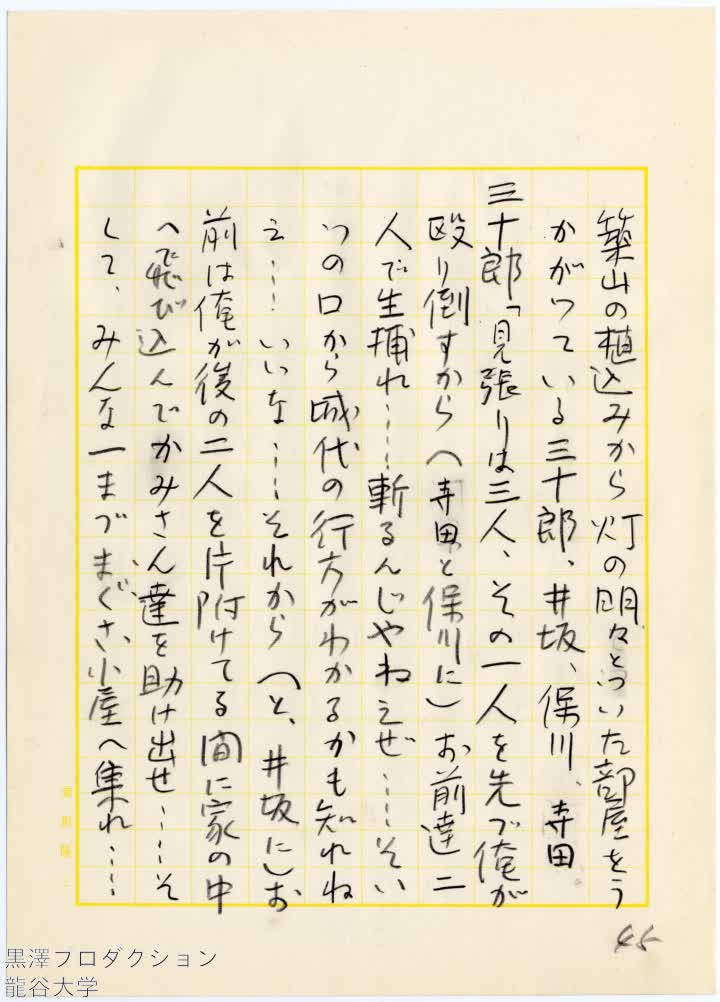 築山の植込みから灯の明々とついた部屋をう
かがっている三十郎、井坂、保川、寺田
三十郎「見張りは三人、その一人を先づ俺が
殴り倒すから（寺田と保川に）お前達二
人で生捕れ……斬るんじやねえぜ……そい
つの口から城代の行方がわかるかも知れね
え……いいな……それから（と、井坂に）お
前は俺が後の二人を片附けてる間に家の中
へ飛び込んでかみさん達を助け出せ……そ
して、みんな一まづまぐさ小屋へ集れ……
45
黒澤プロダクション
龍谷大学